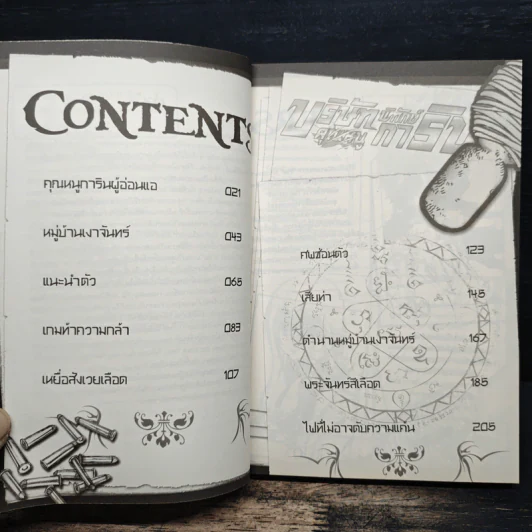 CONTENTS
คุณหนูการินผู้อ่อนแอ 021
หมู่บ้านเงาจันทร์ 043
แนะนำตัว 065
เกมท้าความกล้า 083
เหยื่อสังเวยเลือด 107
ศพซ่อนตัว 123
เสียท่า 145
ตำนานหมู่บ้านเงาจันทร์ 167
พระจันทร์สีเลือด 185
ไฟที่ไม่อาจดับความแค้น 205